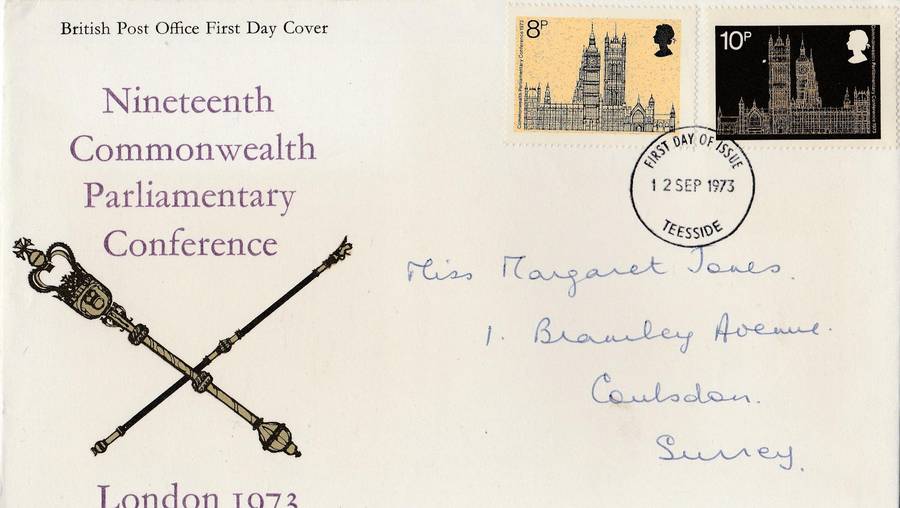 British Post Office First Day Cover
Nineteenth
Commonwealth
Parliamentary
Conference
London 1973
8P
Commonwealth Parliamentary Conference 1973
10P
Commonwealth Parliamentary Conference 1973
FIRST DAY OF ISSUE
12 SEP 1973
TEESSIDE
Miss Margaret Jones.
1. Bramley Avenue.
Coulsdon.
Surrey.